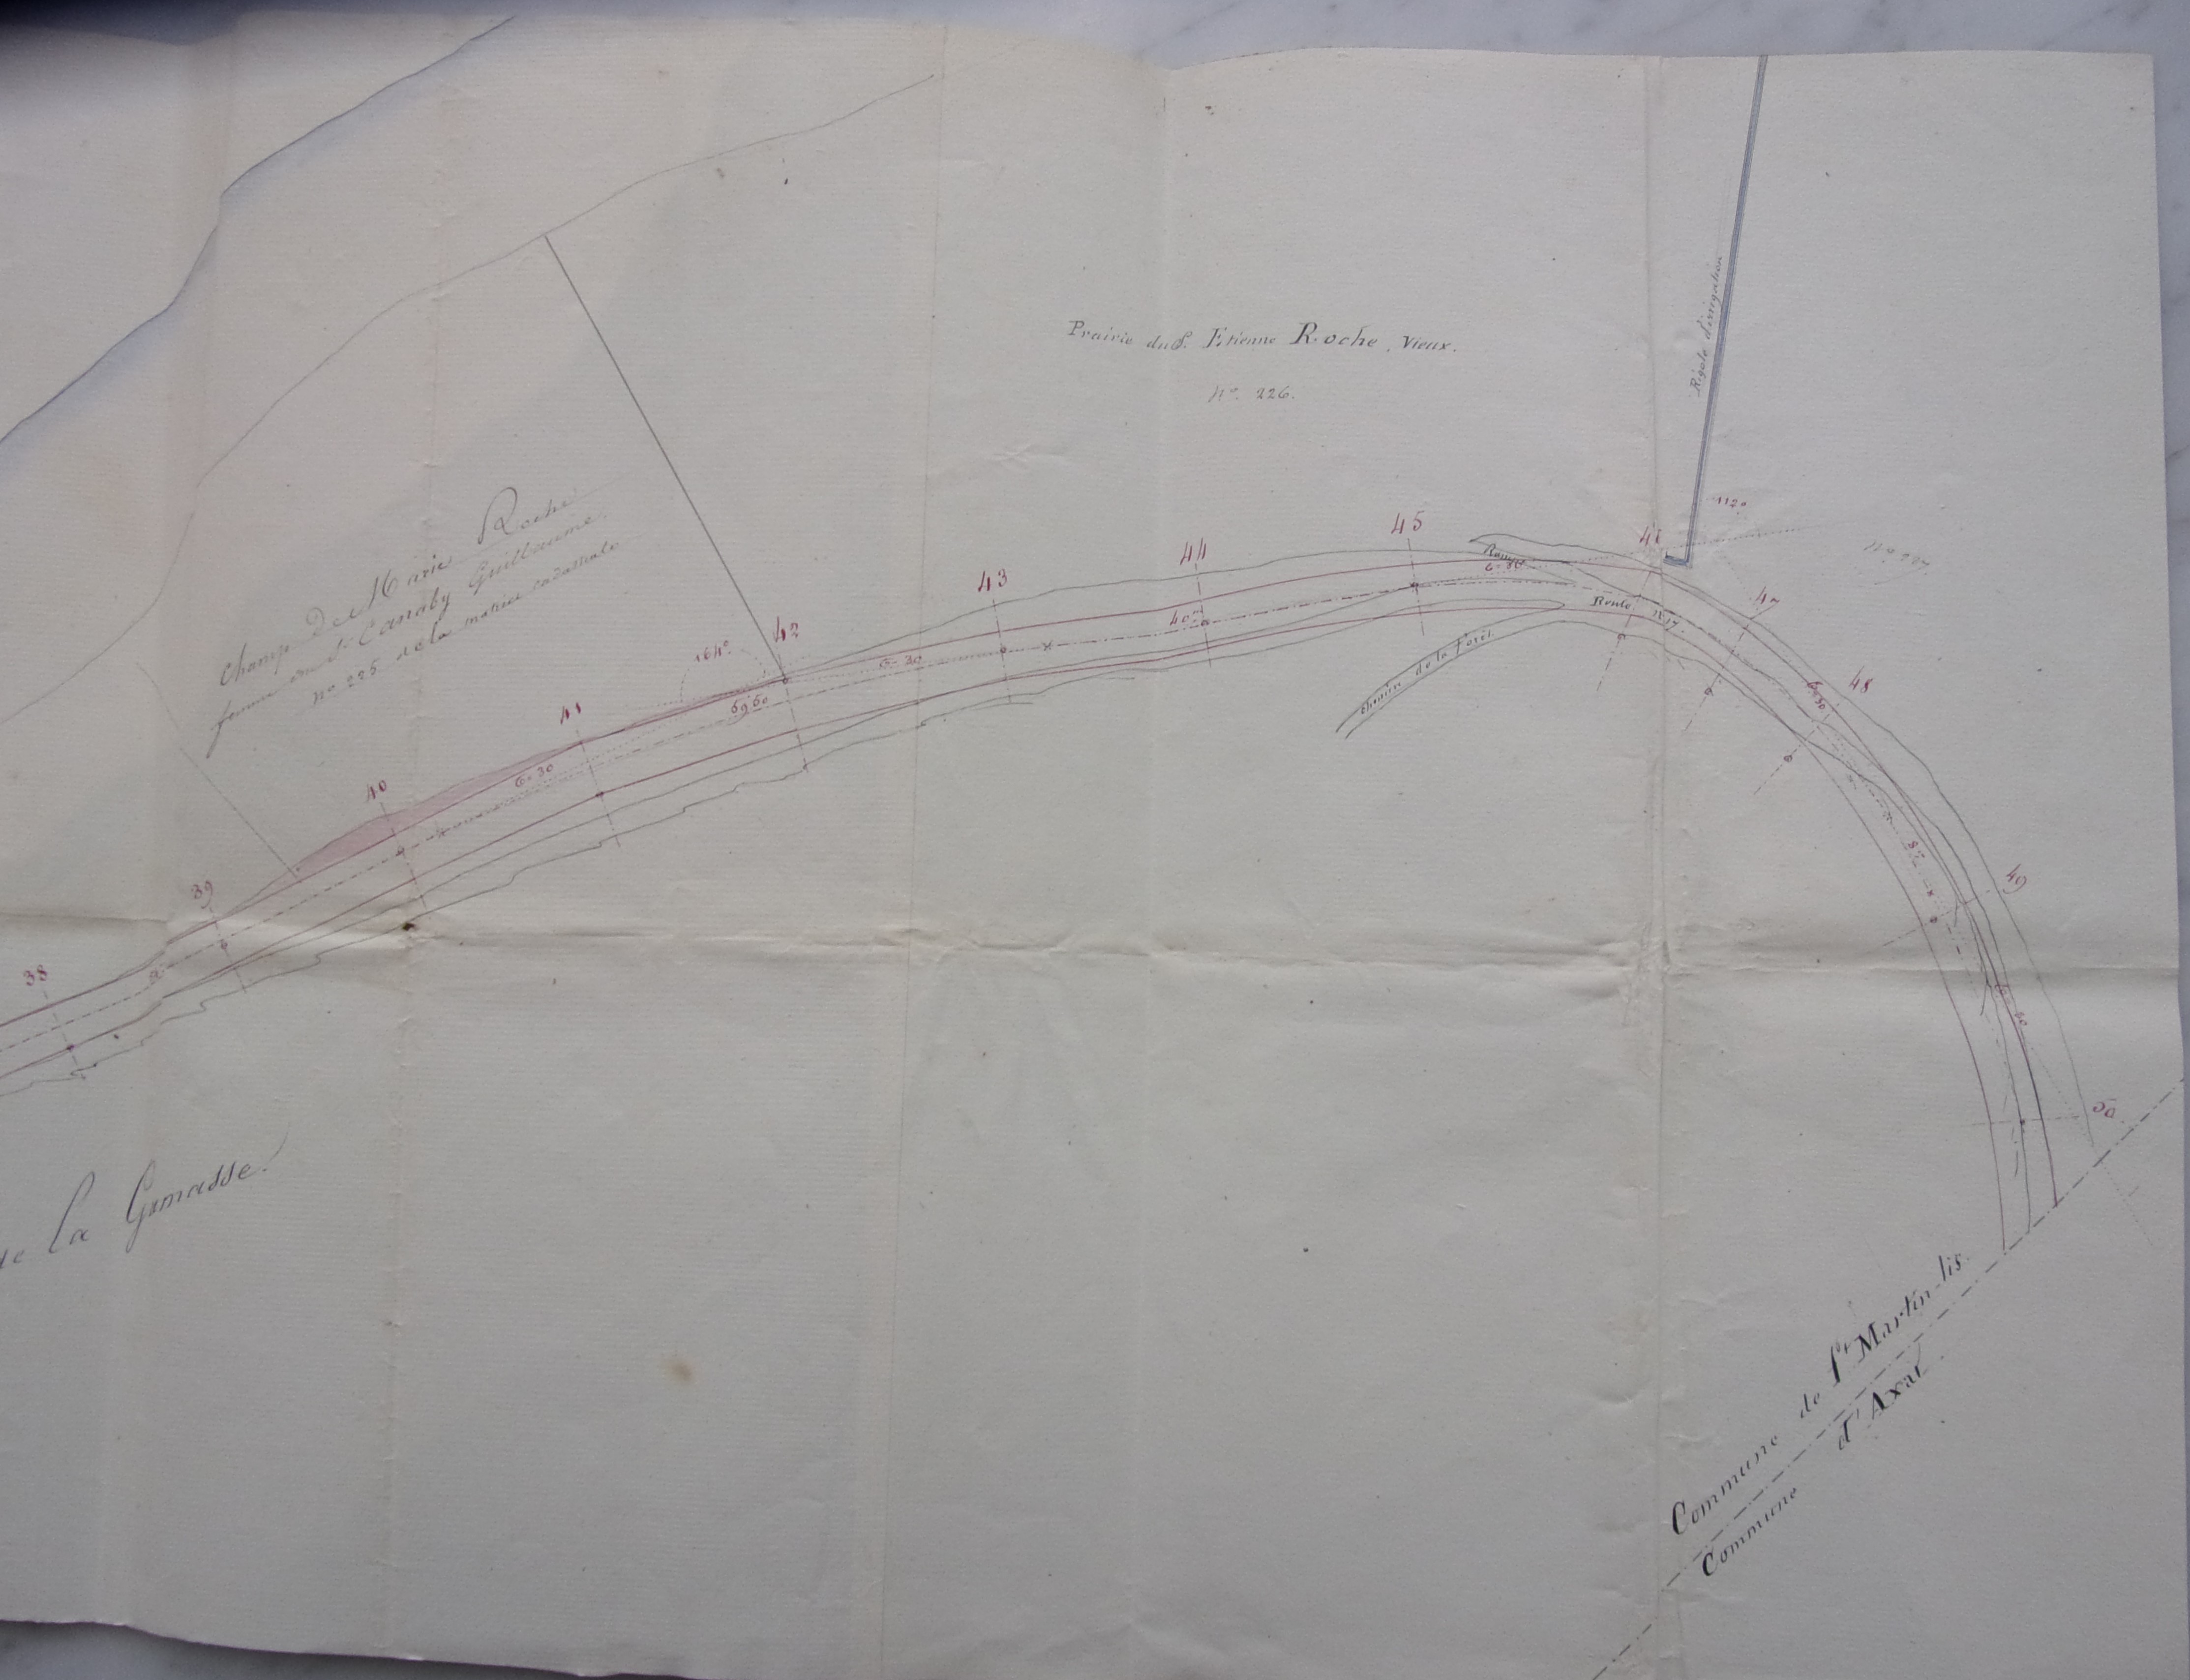 Prairie du S. Etienne Roche, Vieux.
N° 226.
Rigole d'irrigation
112°
Champ de Marie Roche
femme du Sr Canaby Guillaume
n° 225 de la matrice cadastrale
38
39
40
41
42
43
44
45
46
47
48
49
50
164°
6=30
69.60
6=30
40m
6=30
Rampe
Route N 17.
Chemin de la Forêt
de La Gamasse.
Commune de St Martin-lis.
Commune d'Axat.